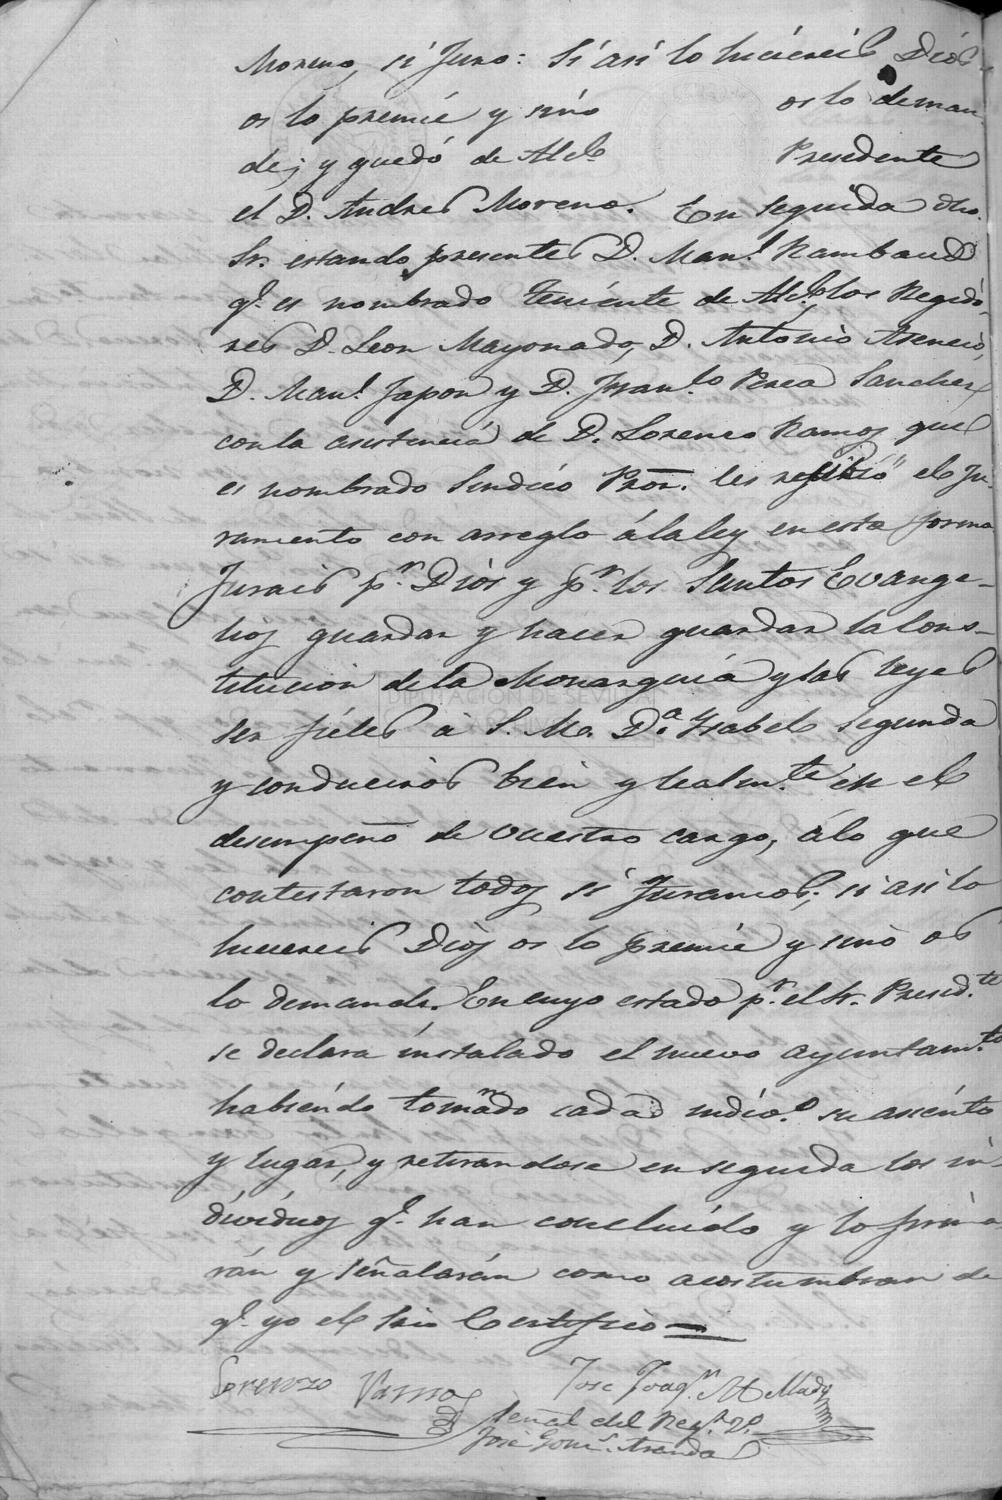 Moreno, si Juro: Si asi lo hiciereis Diós
os lo premie y sino os lo deman
de; y quedó de Alc.e Presidente
el D. Andres Moreno. En seguida dho.
Sr. estando presentes D. Man.l Rambaud
q.e es nombrado Teniente de Alc.e, los Regido
res D. Leon Mayonado, D. Antonio Asencio,
D. Man.l Japon y D. Fran.co Perea Sanchez
con la asistencia de D. Lorenzo Ramos que
es nombrado Sindico Pror. les resibió el Ju
ramento con arreglo á la ley en esta forma
Jurais p.r Diós y p.r los Santos Evange-
lios guardar y hacer guardar la Cons-
titucion de la Monarquia y las leyes
ser fieles á S. M. D.a Ysabel segunda
y conduciros bien y lealm.te en el
desempeño de vuestro cargo, á lo que
contestaron todos si Juramos; si asi lo
hiciereis Diós os lo premie y sino os
lo demande. En cuyo estado p.r el Sr. Presid.te
se declara instalado el nuevo ayuntam.to
habiendo tomado cada indiv.o su asiento
y lugar, y retirandose en seguida los in
dividuos q.e han concluido y lo firma
rán y señalarán como acostumbran de
q.e yo el Srio Certifico
Lorenzo Ramos Jose Joaq.n
señal del Reg.r 2.o
José Gom.s Aranda
DIPUTACIÓN DE SEVILLA